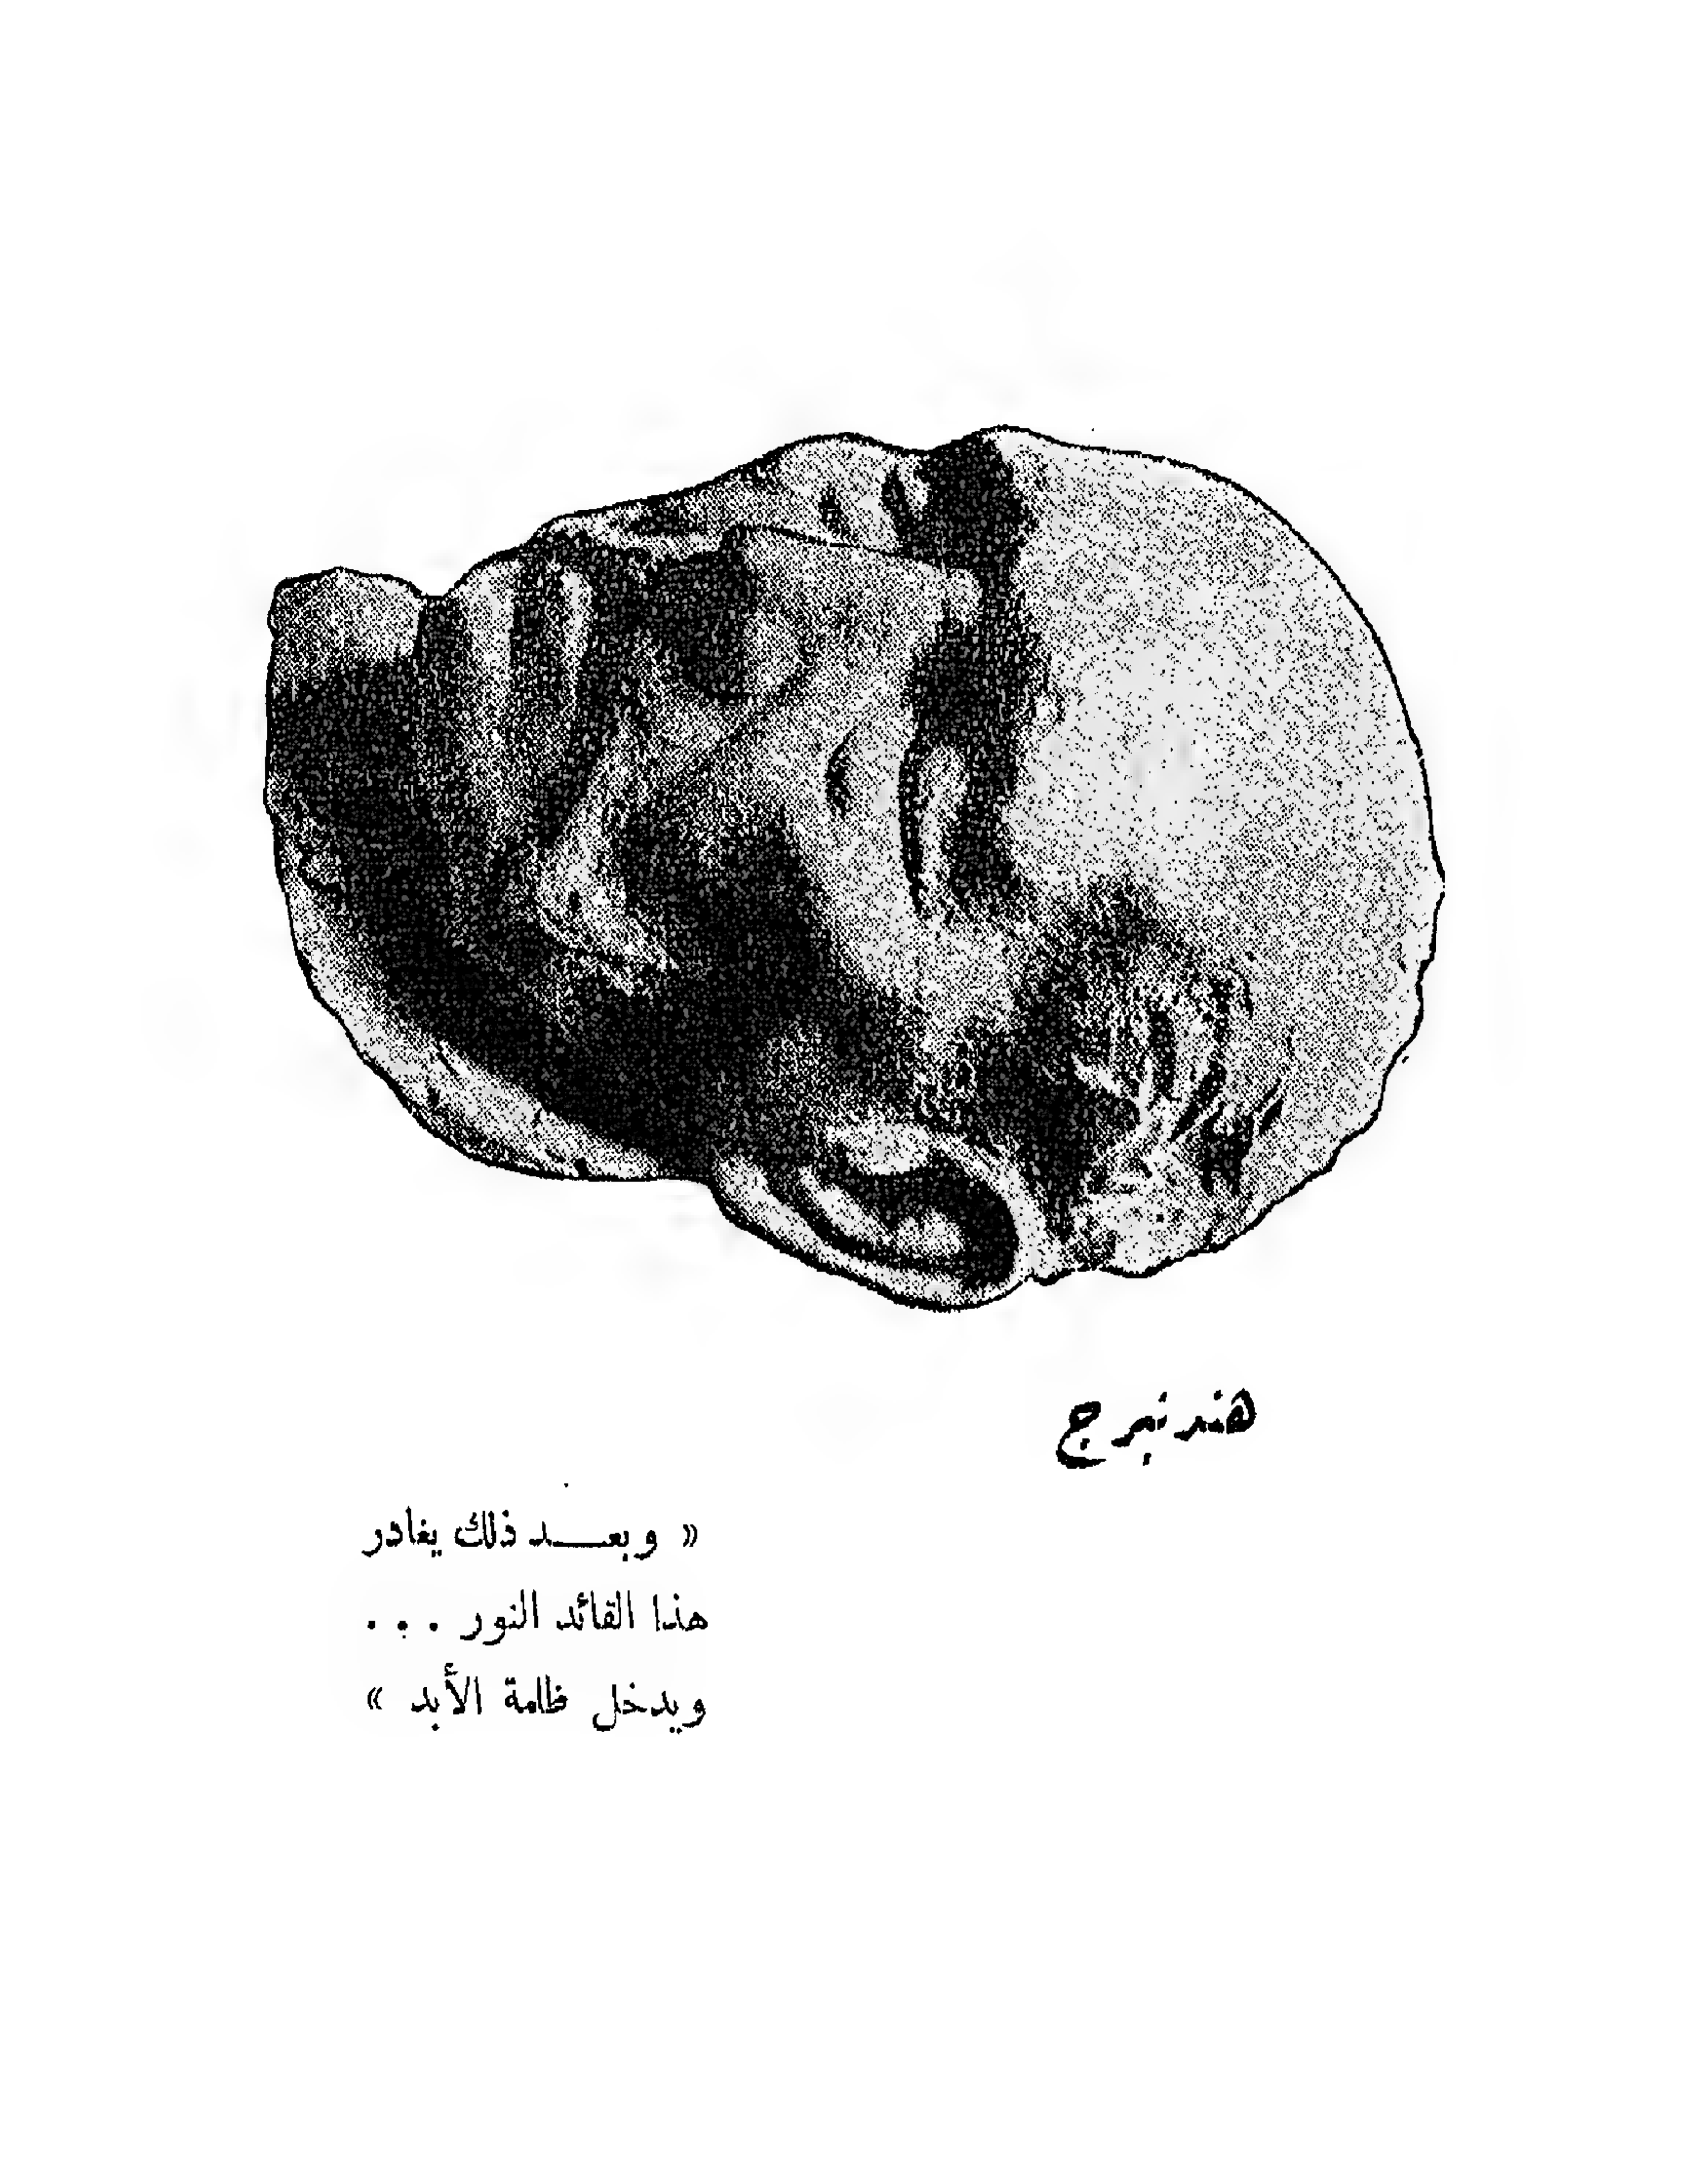 هندنبرج
« وبعـــد ذلك يغادر
هذا القائد النور . . .
ويدخل ظلمة الأبد »